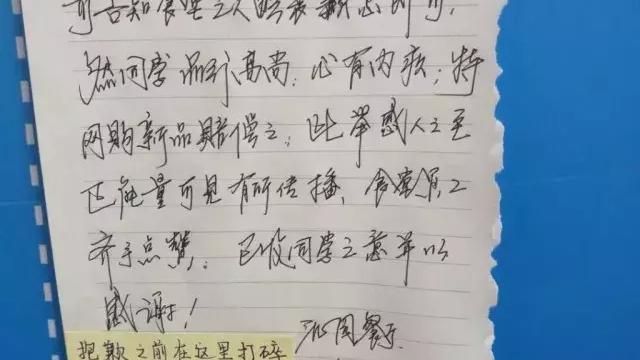 可告知食堂之人略表歉意即可,
然同学品行高尚,心有内疚,特
网购新品赔偿之,此举感人之至
正能量可见有所传播,食堂员工
齐手点赞,已收同学之意并以
感谢!
沁园餐厅
抱歉之前在这里打碎